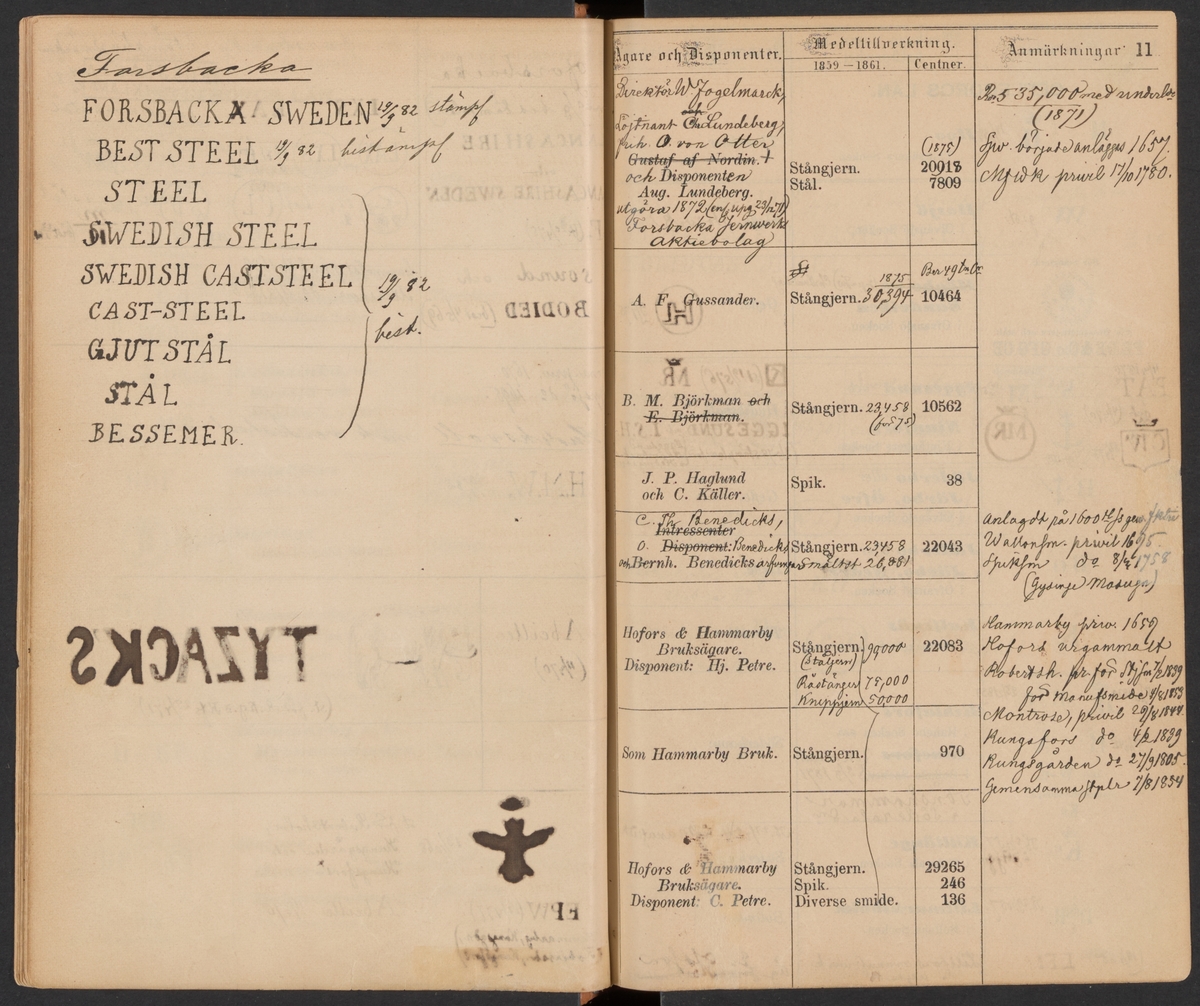 Forsbacka
FORSBACKA SWEDEN 19/9 82 stämpf
BEST STEEL 19/9 82 bistämpf
STEEL
SWEDISH STEEL
SWEDISH CASTSTEEL
CAST-STEEL
GJUTSTÅL
STÅL
BESSEMER.
19/9 82
bist.
TYZACKS
Ägare och Disponenter.
Medeltillverkning.
1859—1861.
Centner.
Anmärkningar
11
Direktör W Fogelmarck,
Löjtnant Chr Lundeberg,
frih. O. von Otter
Gustaf af Nordin. †
och Disponenten
Aug. Lundeberg.
utgöra 1872
Forsbacka Jernwerks
Aktiebolag
(1875)
Stångjern. 20018
Stål. 7809
535,000 med underl
(1871)
började anläggas 1657.
privil 17/10 1780.
A. F. Gussander.
1875
Stångjern. 30,394 10464
B. M. Björkman och
E. Björkman.
Stångjern. 23,458 10562
(för 75)
J. P. Haglund
och C. Käller.
Spik. 38
C. Th Benedicks,
Intressenter
O. Disponent: Benedicks
och Bernh. Benedicks arfvingar
Stångjern. 23,458 22043
Smältst 26,881
Anlagdt på 1600
Wallonsm. privil 1695
Spiksm do 1758
(Gysinge Masugn)
Hofors & Hammarby
Bruksägare.
Disponent: Hj. Petre.
Stångjern. 99000 22083
(Ståljern)
Råstänger 75,000
Knippjern 50,000
Hammarby priv. 1659
Hofors urgammalt
Robertsh. pr. för Stjsm 7/2 1839
för Manufsmide 4/8 1853
Montrose, privil 29/8 1844
Kungsfors do 4/2 1839
Kungsgården do 27/9 1805.
Gemensamma Stplr 7/8 1854
Som Hammarby Bruk.
Stångjern. 970
Hofors & Hammarby
Bruksägare.
Disponent: C. Petre.
Stångjern. 29265
Spik. 246
Diverse smide. 136